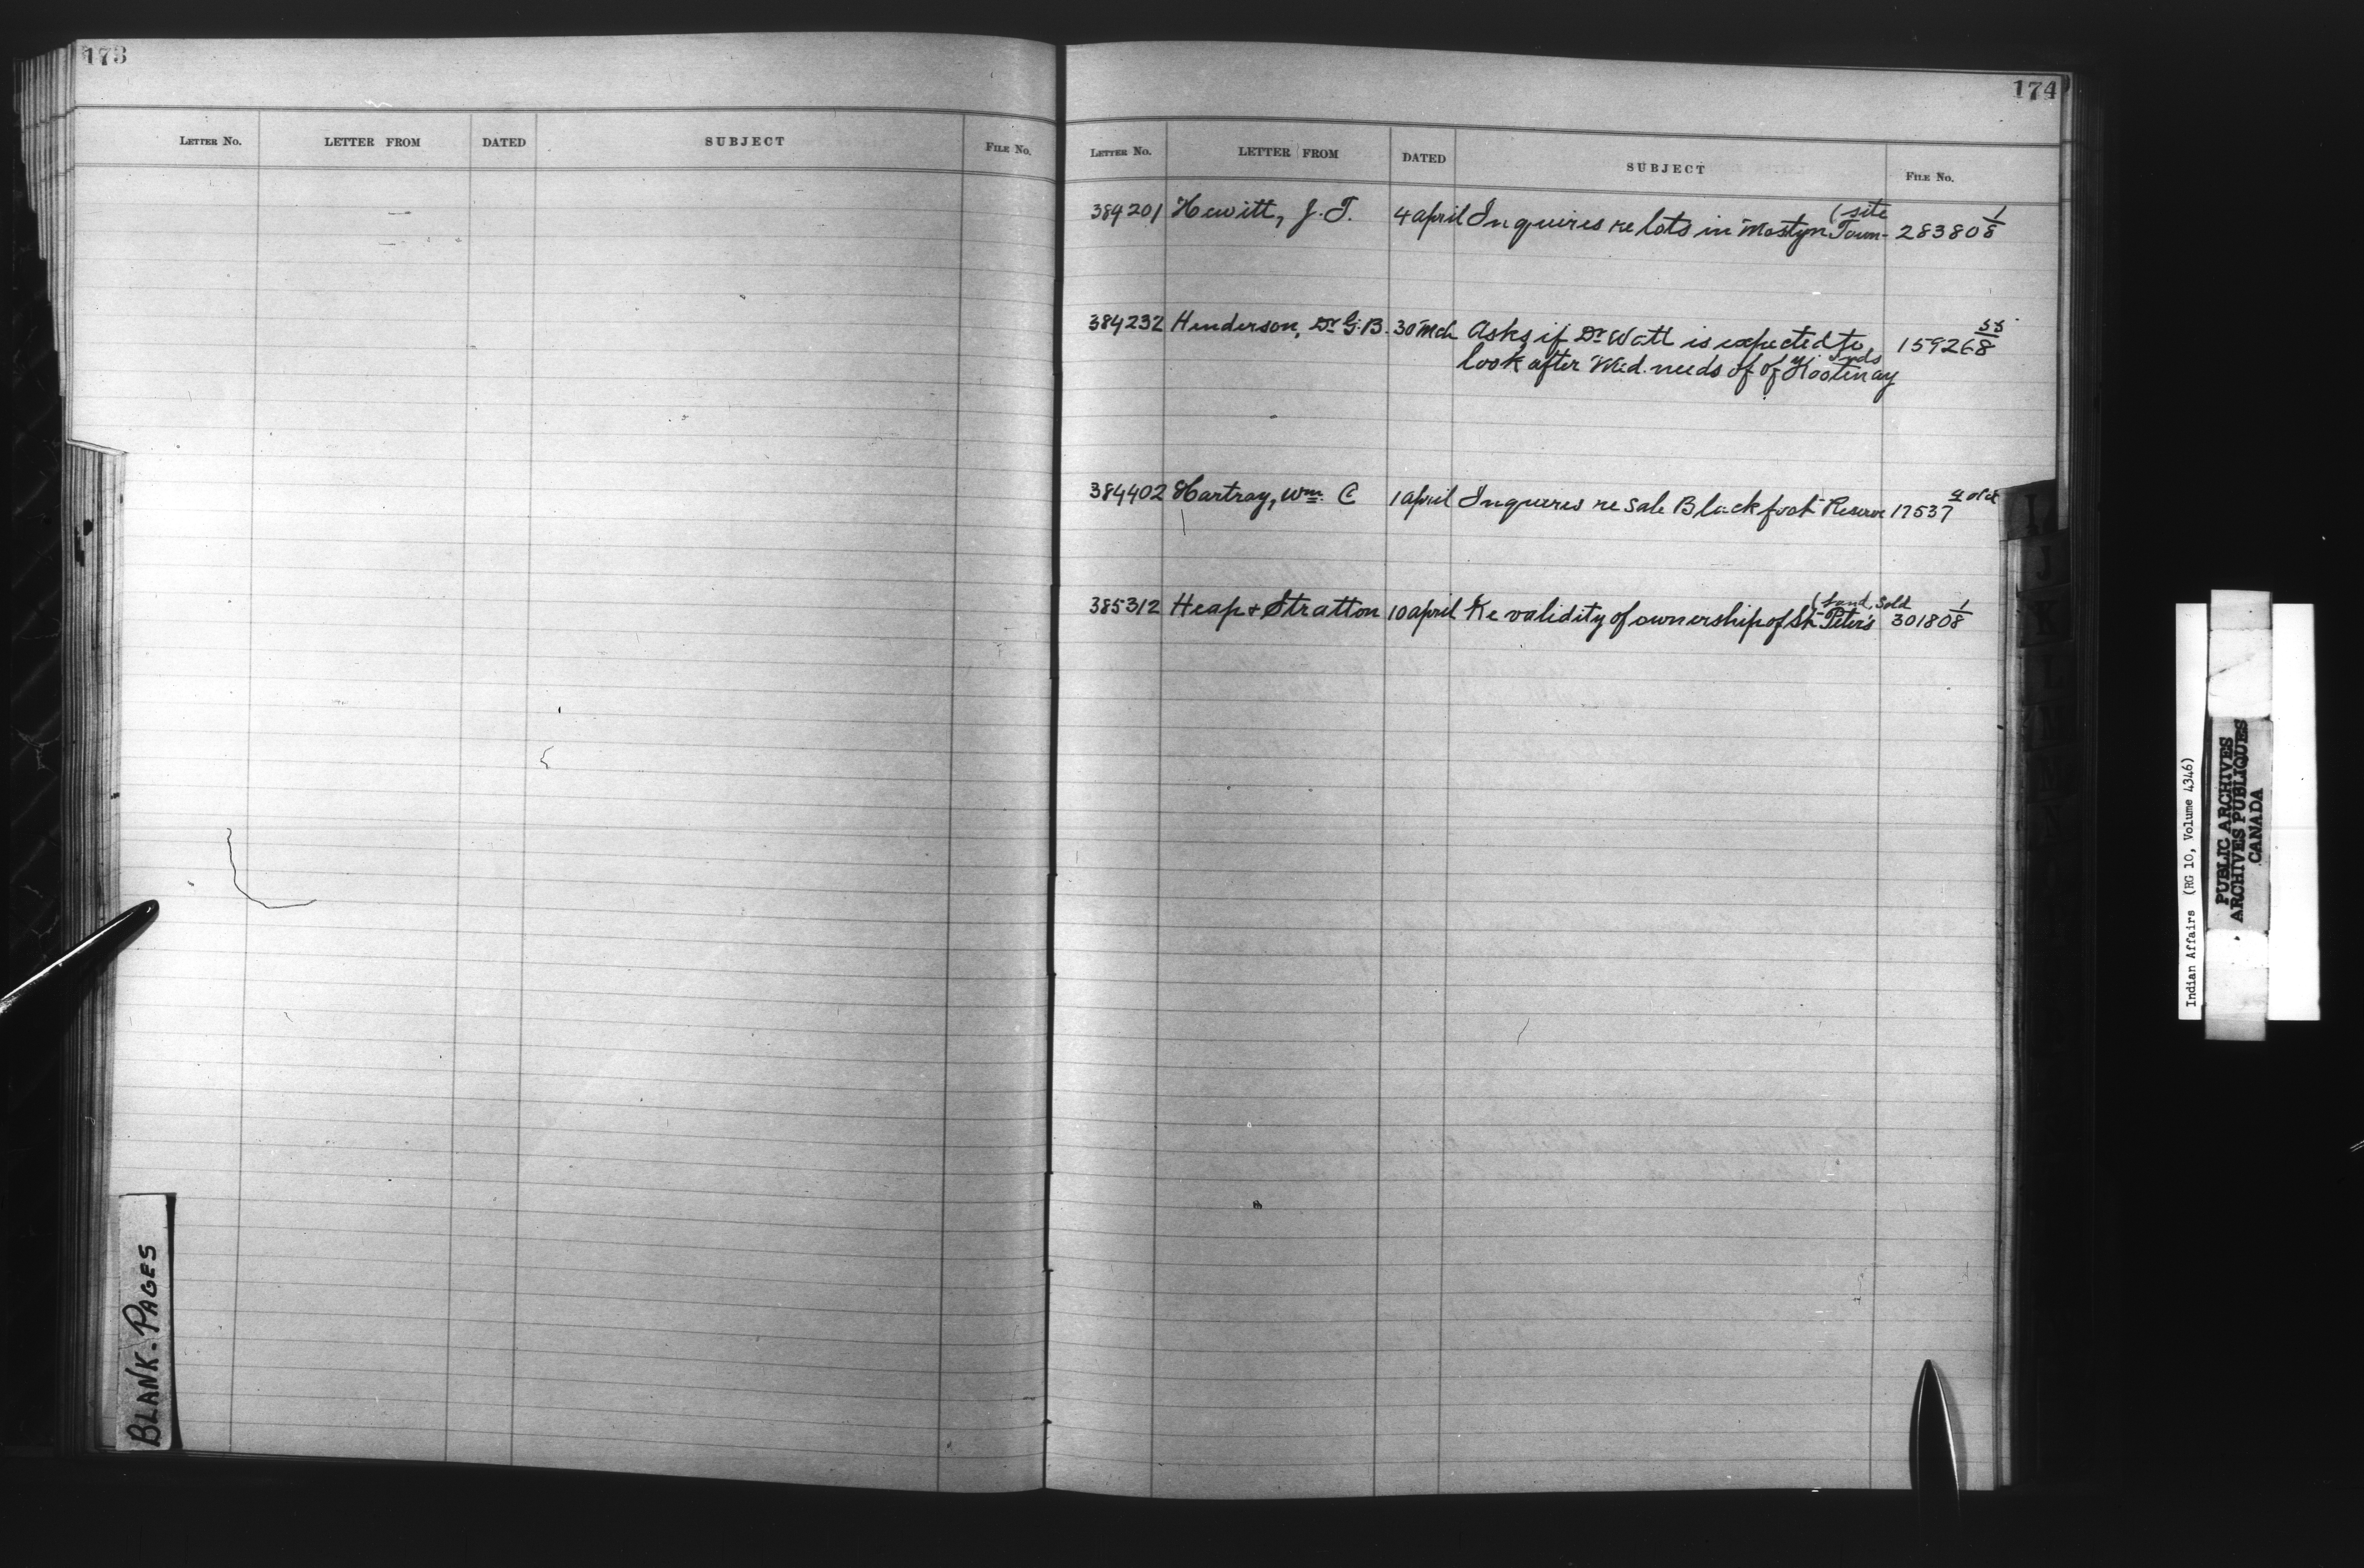 173
LETTER No. LETTER FROM DATED SUBJECT FILE No.
BLANK-PAGES
174
LETTER No. LETTER FROM DATED SUBJECT FILE No.
(site
384201 Hewitt, J. T. 4 april Inquires re lots in Mostyn Town- 28380 1/8
384232 Henderson, Dr G. B. 30 Mch Asks if Dr Watt is expected to 15926
look after Med. needs of of Kootenay Inds
384402 Hartray, Wm. C 1 april Inquires re sale Blackfoot Reserve 17537
(Land sold
385312 Heap & Stratton 10 april Re validity of ownership of St Peter's 30180 1/8
I
J
K
L
M
Indian Affairs (RG 10, Volume 4346)
PUBLIC ARCHIVES
ARCHIVES PUBLIQUES
CANADA